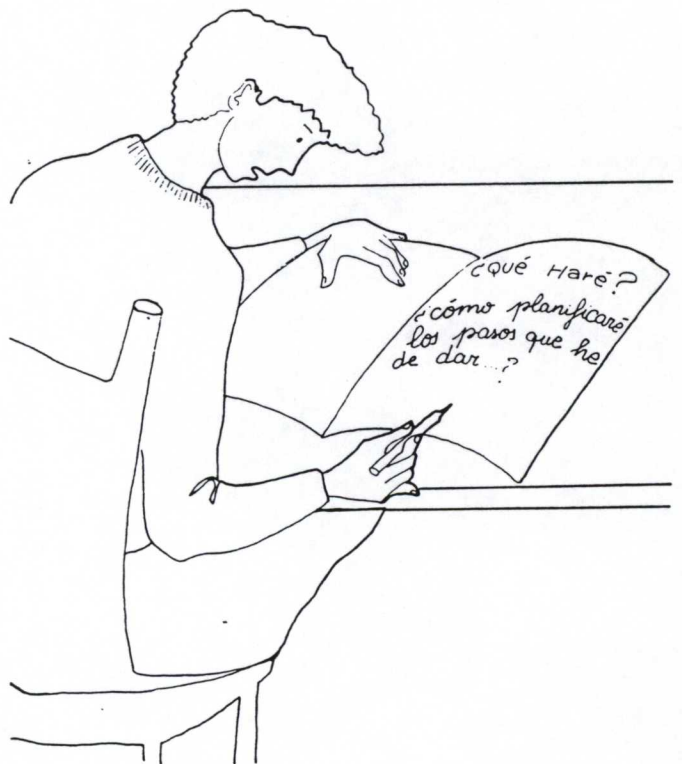 ¿Qué Haré?
¿cómo planificaré
los pasos que he
de dar...?